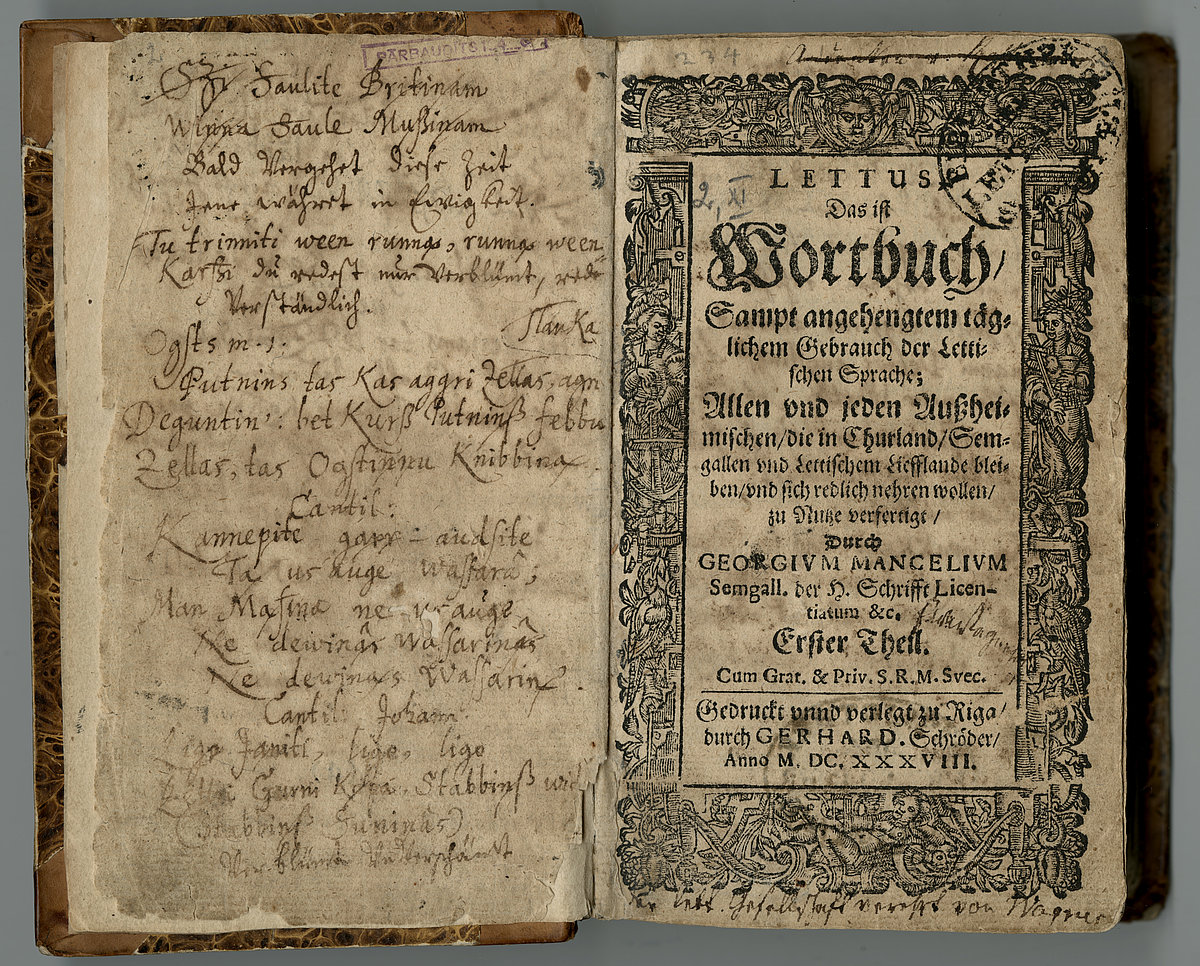 PARBAUDITS
Schi Saulite Britinam
Winna Saule Mußinam
Bald Vergehet diese Zeit
Jene währet in Ewigkeit.
Tu trinniti ween runna, runna ween
Karschi du redest nur Verblümt, rede
Verständlich.
Ogsts m. 1.
Putnins tas Kas aggri Zellas, agri
Deguntin': bet Kurß Putninß
Zellas, tas Ogstinnu Knibbina.
Cantil:
Kannepite garr-audsite
Ta us auge Wassarâ;
Man Masina ne us auge
Ne dewinâs Wassarinâs
Ne dewinas Wassarinâ.
Cantil. Johann.
Ligo Janiti, ligo, ligo
Gurni Stabbinß
(Stabbinß
Verblümte
234
2, XI
LETTUS,
Das ist
Wortbuch/
Sampt angehengtem täg-
lichem Gebrauch der Letti-
schen Sprache;
Allen vnd jeden Außhei-
mischen/die in Churland/Sem-
gallen vnd Lettischem Liefflande blei-
ben/vnd sich redlich nehren wollen/
zu Nutze verfertigt/
Durch
GEORGIVM MANCELIVM
Semgall. der H. Schrifft Licen-
tiatum &c.
Erster Theil.
Cum Grat. & Priv. S.R.M. Svec.
Gedruckt vnnd verlegt zu Riga/
durch GERHARD. Schröder/
Anno M. DC. XXXVIII.
lett. Gesellschaft verehrt von Wagner